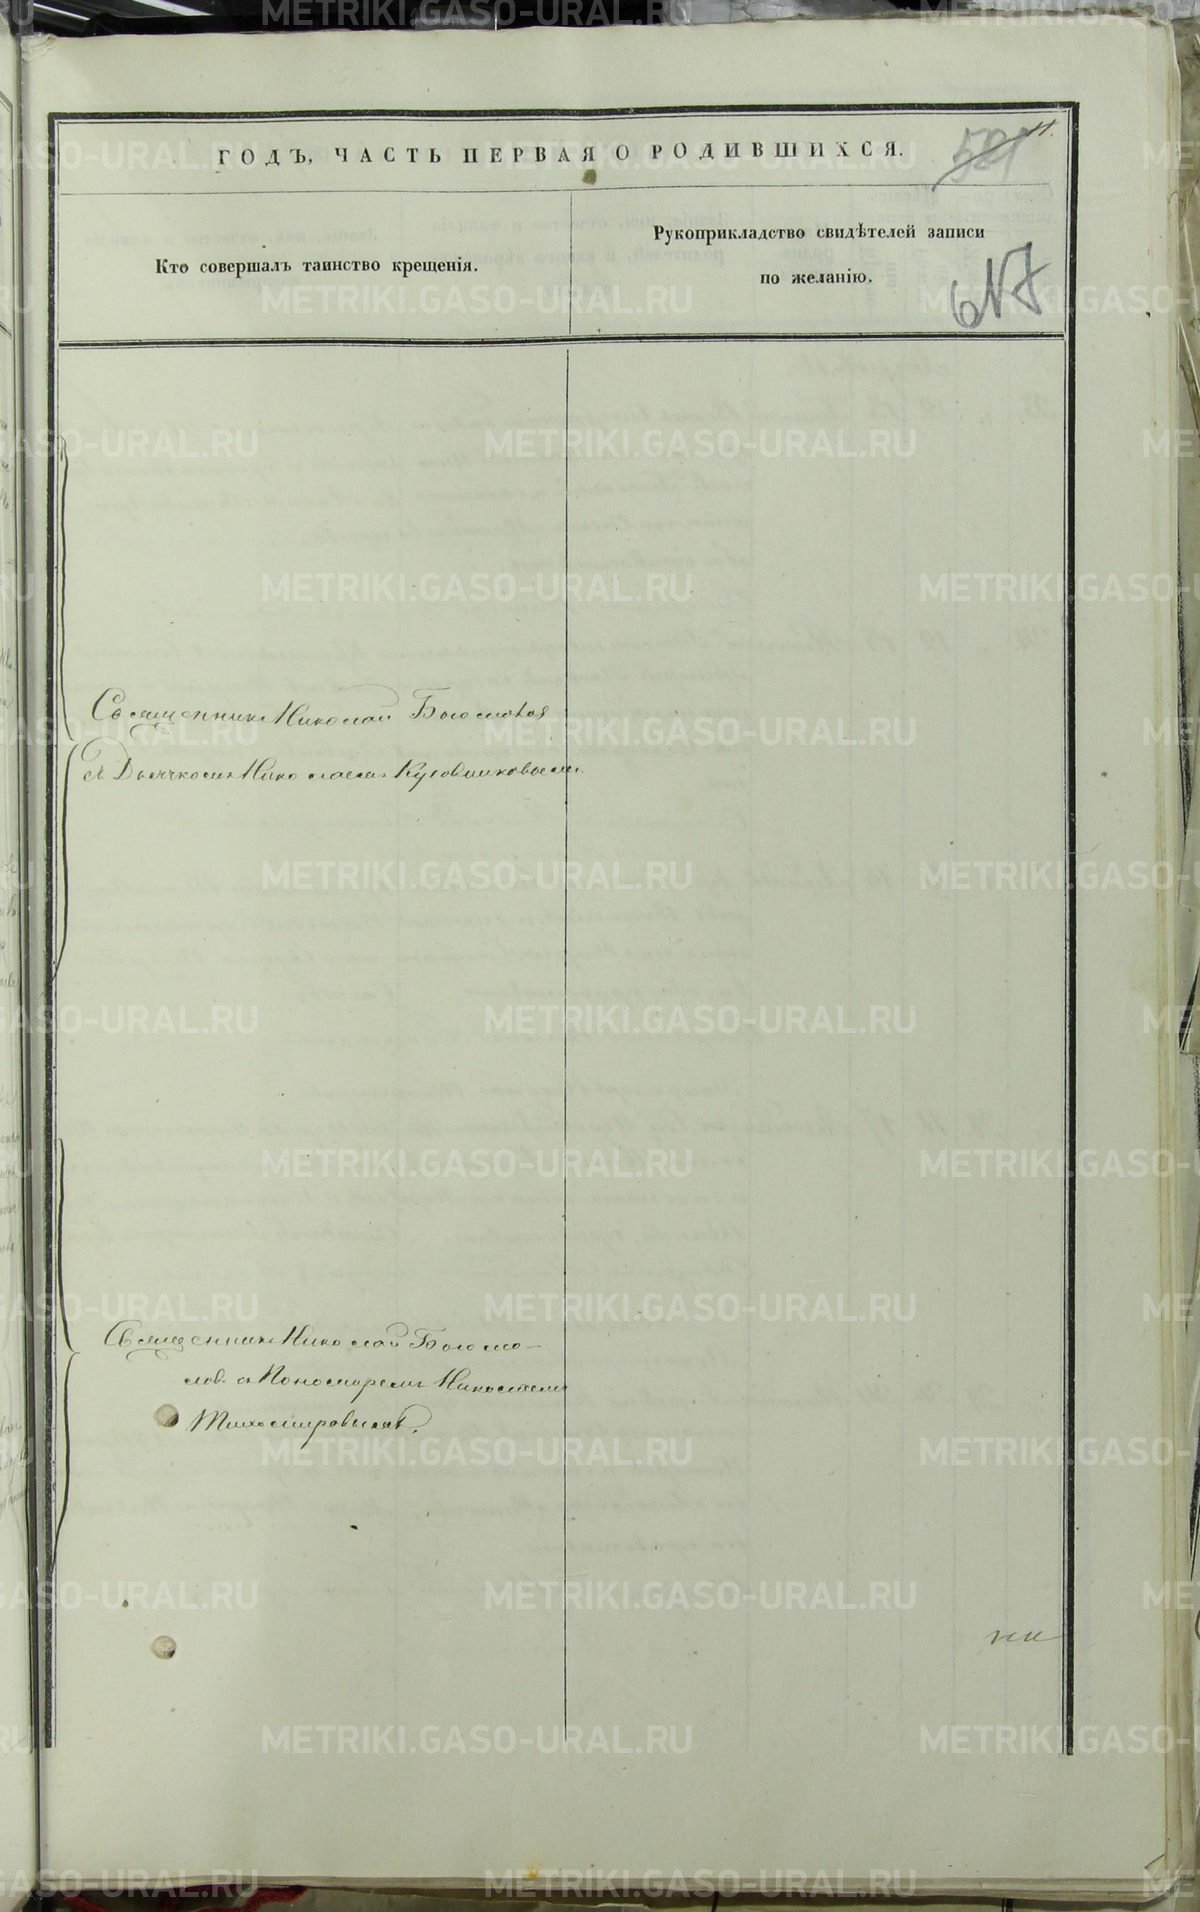 11.
ГОДЪ, ЧАСТЬ ПЕРВАЯ О РОДИВШИХСЯ.
Кто совершалъ таинство крещенія.
Рукоприкладство свидѣтелей записи
по желанію.
617
Священникъ Николай Богомолов
съ Дьячкомъ Николаемъ Кузовниковымъ
Священникъ Николай Богомо-
лов. съ Пономаремъ Николаемъ
Тихомировымъ.
METRIKI.GASO-URAL.RU